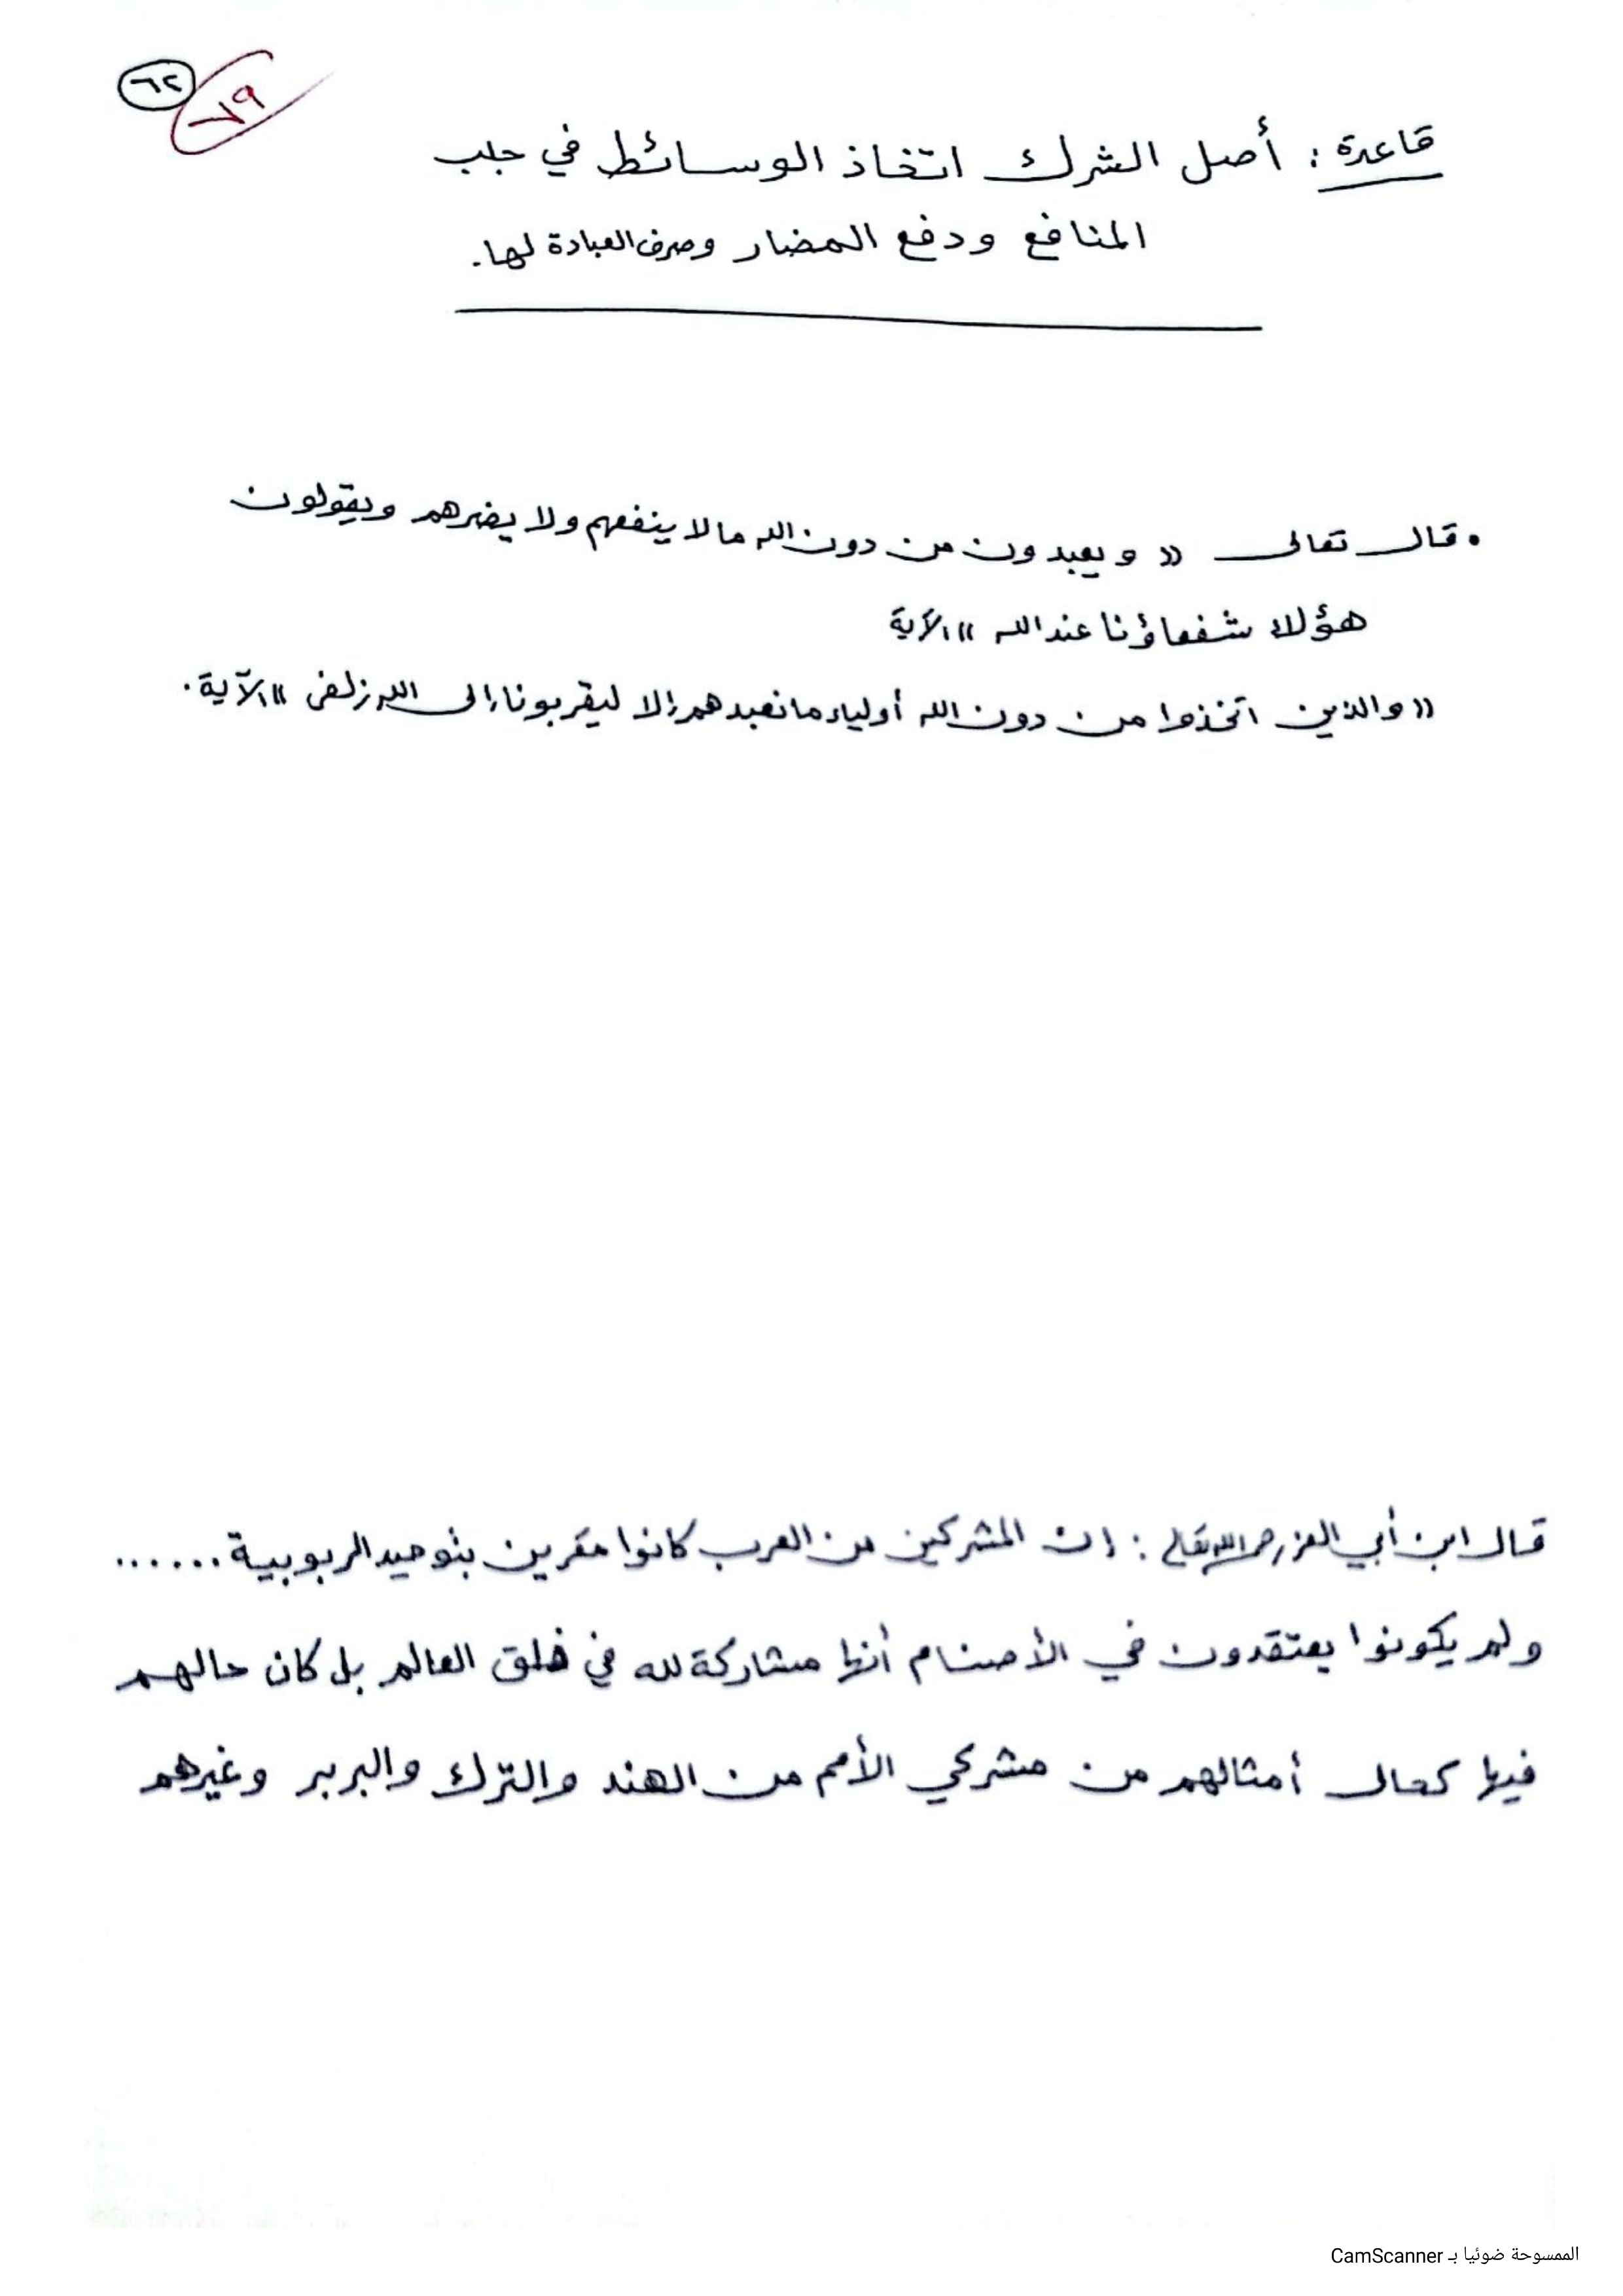 ٦٢
٧٩
قاعدة : أصل الشرك اتخاذ الوسائط في جلب
المنافع ودفع المضار وصرف العبادة لها.
• قال تعالى « ويعبدون من دون الله ما لا ينفعهم ولا يضرهم ويقولون
هؤلاء شفعاؤنا عند الله » الآية
« والذين اتخذوا من دون الله أولياء ما نعبدهم إلا ليقربونا إلى الله زلفى » الآية.
قال ابن أبي العز رحمه الله تعالى : إن المشركين من العرب كانوا مقرين بتوحيد الربوبية ......
ولم يكونوا يعتقدون في الأصنام أنها مشاركة لله في خلق العالم بل كان حالهم
فيها كحال أمثالهم من مشركي الأمم من الهند والترك والبربر وغيرهم
الممسوحة ضوئيا بـ CamScanner